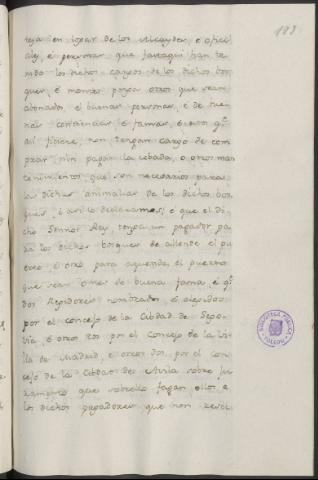 183
teza en logar de los Alcaydes, e ofici
ales, é personas que fastaqui han te
nido los dichos cargos de los dichos bos
ques, é montes ponga otros que sean
abonados, é buenas personas, é de bue
nas conciencias é famas, é estos qe.
asi ficiere, non tengan cargo de com
prar nin pagar la cebada, o otros man
tenimientos que son necesarios para
las dichas animalias de los dichos bos
ques, é asi lo declaramos; é que el di
cho Sennor Rey, tenga un pagador pa
ra los dichos bosques de allende el pu
erto é otro para aquende el puerto
que sean omes de buena fama, é qe.
dos Regidores nombrados, é elegidos
por el concejo de la Cibdad de Sego
via, é otros dos por el Concejo de la Vi
lla de Madrid, é otros dos, por el con
cejo de la Cibdat de Avila sobre ju
ramento que sobrello fagan ellos e
los dichos pagadores que non resci
BIBLIOTECA PUBLICA
TOLEDO